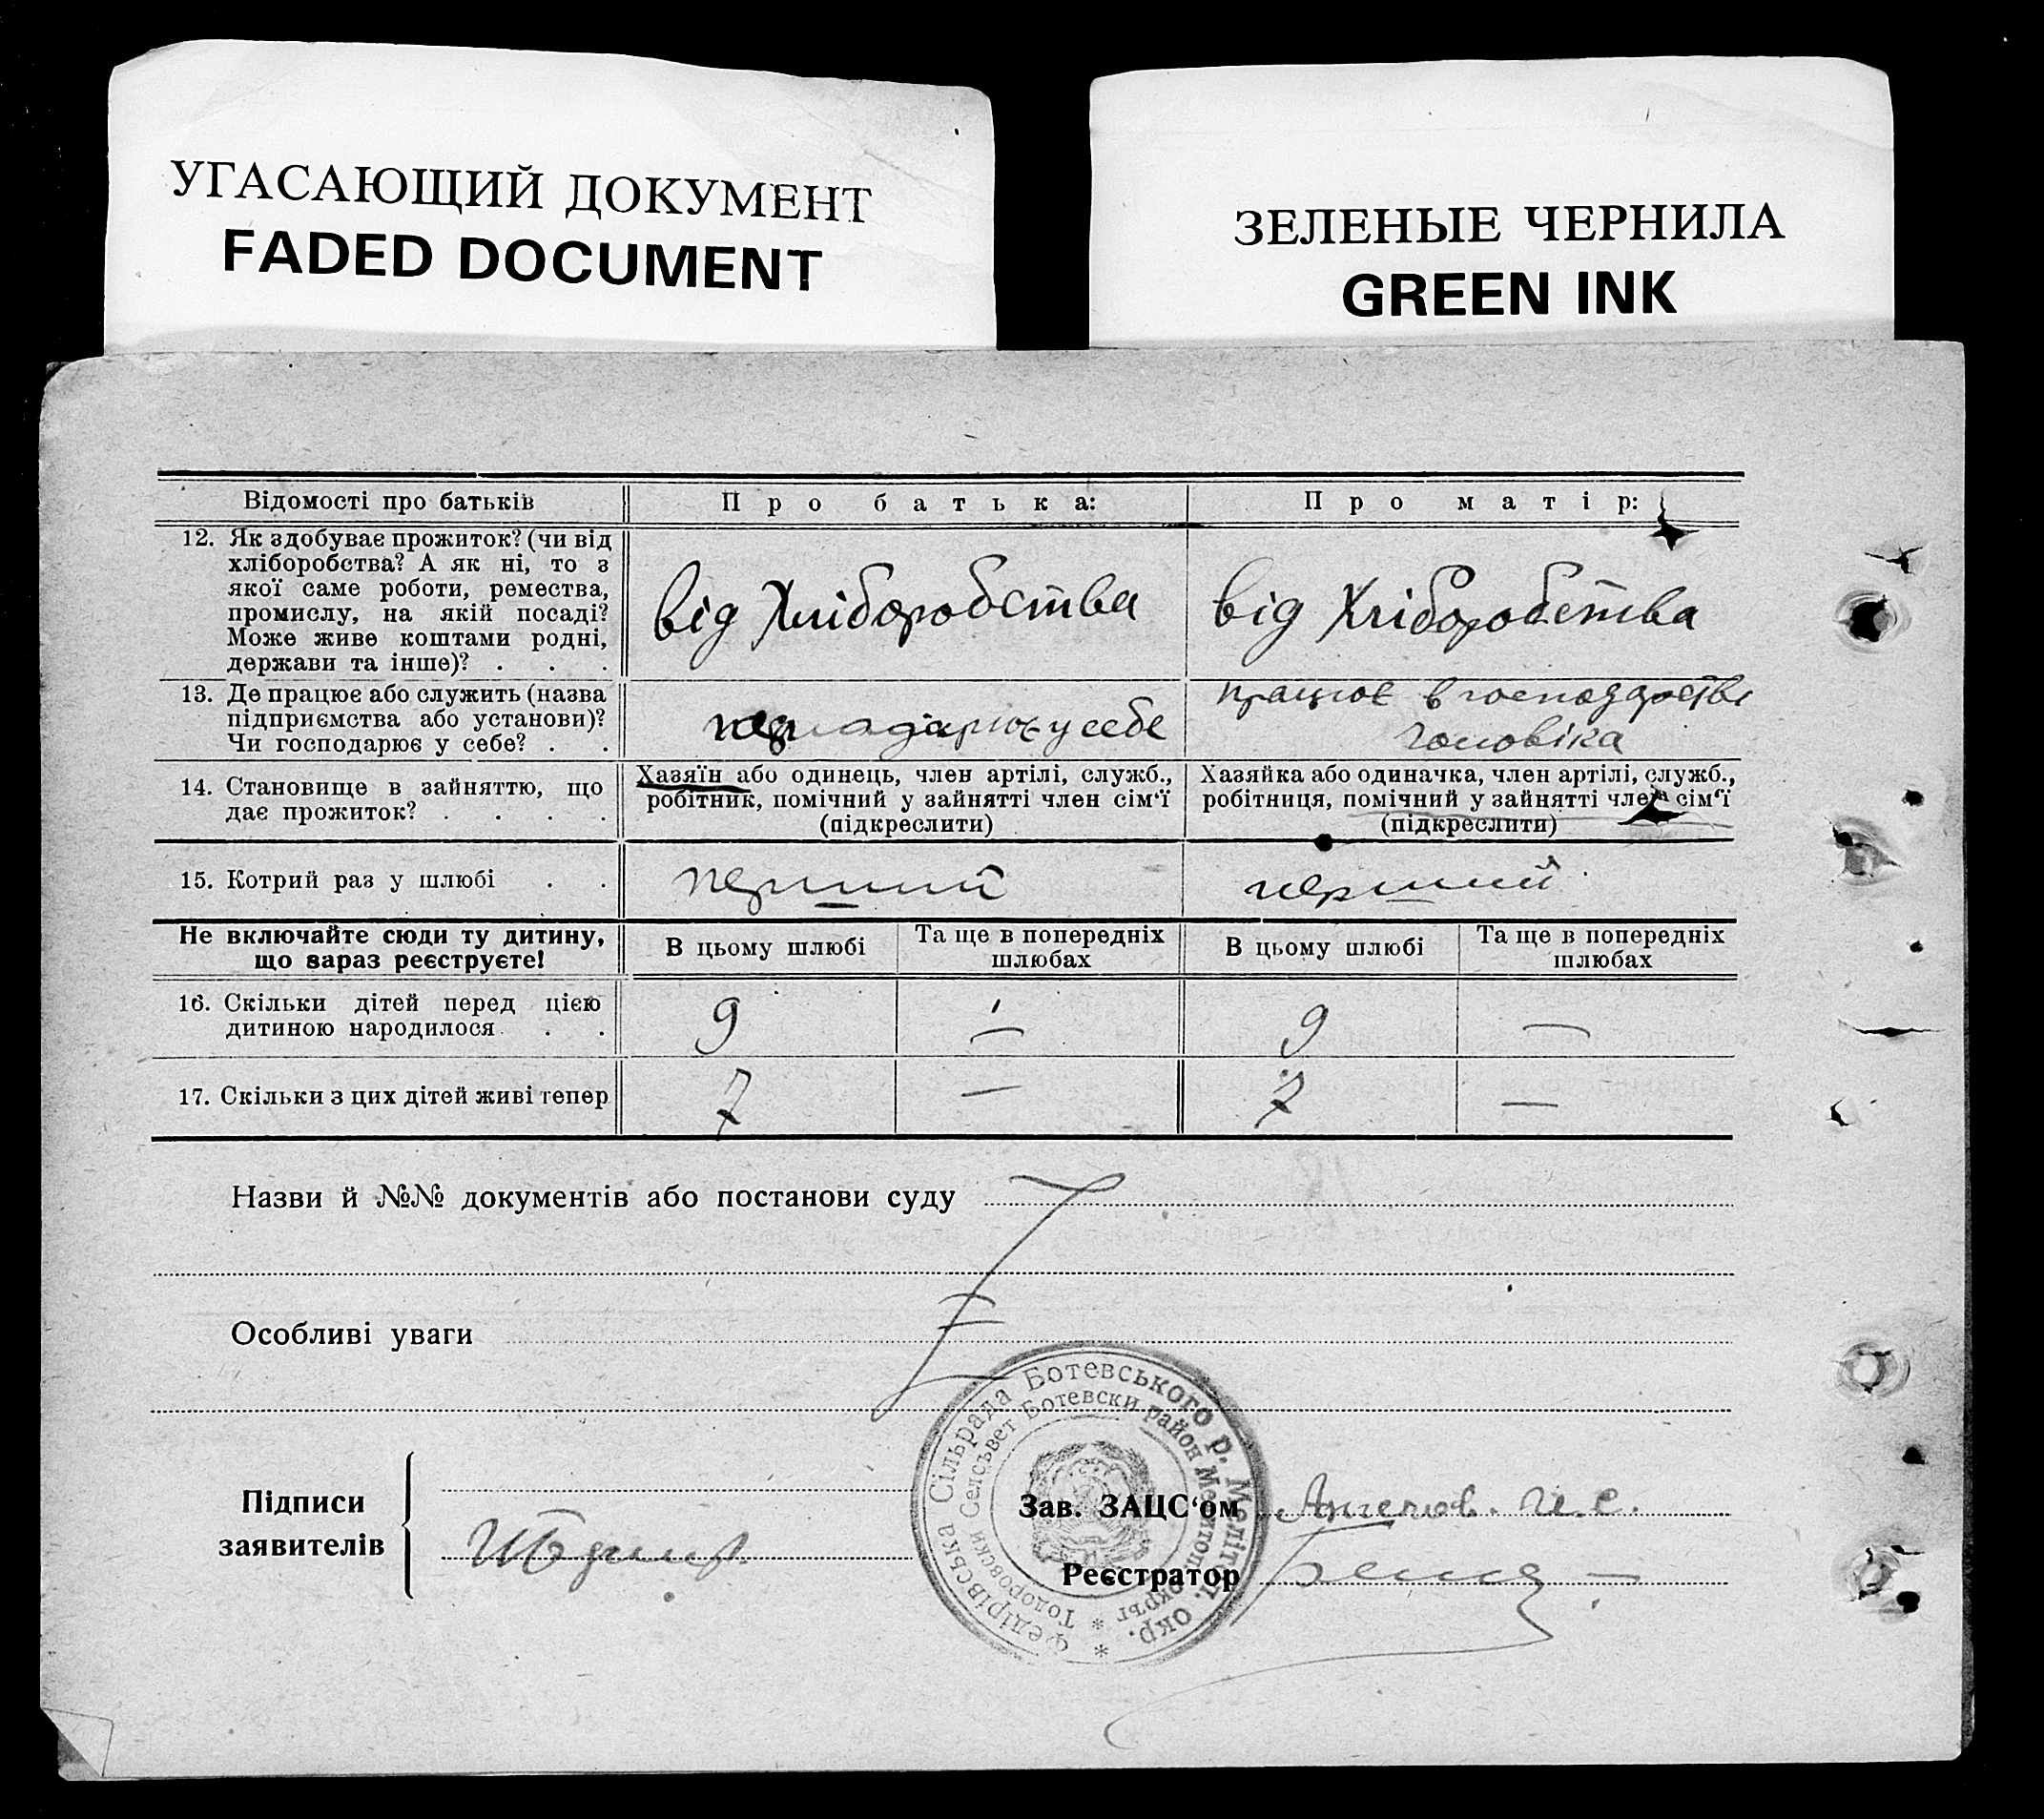 УГАСАЮЩИЙ ДОКУМЕНТ
FADED DOCUMENT
ЗЕЛЕНЫЕ ЧЕРНИЛА
GREEN INK
Відомості про батьків
Про батька:
Про матір:
12. Як здобуває прожиток? (чи від
хліборобства? А як ні, то з
якої саме роботи, ремества,
промислу, на якій посаді?
Може живе коштами родні,
держави та інше)? . . .
від Хліборобства
від Хліборобства
13. Де працює або служить (назва
підприємства або установи)?
Чи господарює у себе? . .
у себе
працює в господарстві
чоловіка
14. Становище в зайняттю, що
дає прожиток? . . . .
Хазяїн або одинець, член артілі, служб.,
робітник, помічний у зайнятті член сім‘ї
(підкреслити)
Хазяйка або одиначка, член артілі, служб.,
робітниця, помічний у зайнятті член сім‘ї
(підкреслити)
15. Котрий раз у шлюбі . .
перший
перший
Не включайте сюди ту дитину,
що вараз реєструєте!
В цьому шлюбі
Та ще в попередніх
шлюбах
В цьому шлюбі
Та ще в попередніх
шлюбах
16. Скільки дітей перед цією
дитиною народилося . . .
9
—
9
—
17. Скільки з цих дітей живі тепер
7
—
7
—
Назви й №№ документів або постанови суду
Особливі уваги
Підписи
заявителів
Зав. ЗАЦС‘ом
Реєстратор
Федірівська Сільрада Ботевського р. Меліт. окр. *
Тодоровски Селсьвет Ботевски район Мелитопол. окръг *